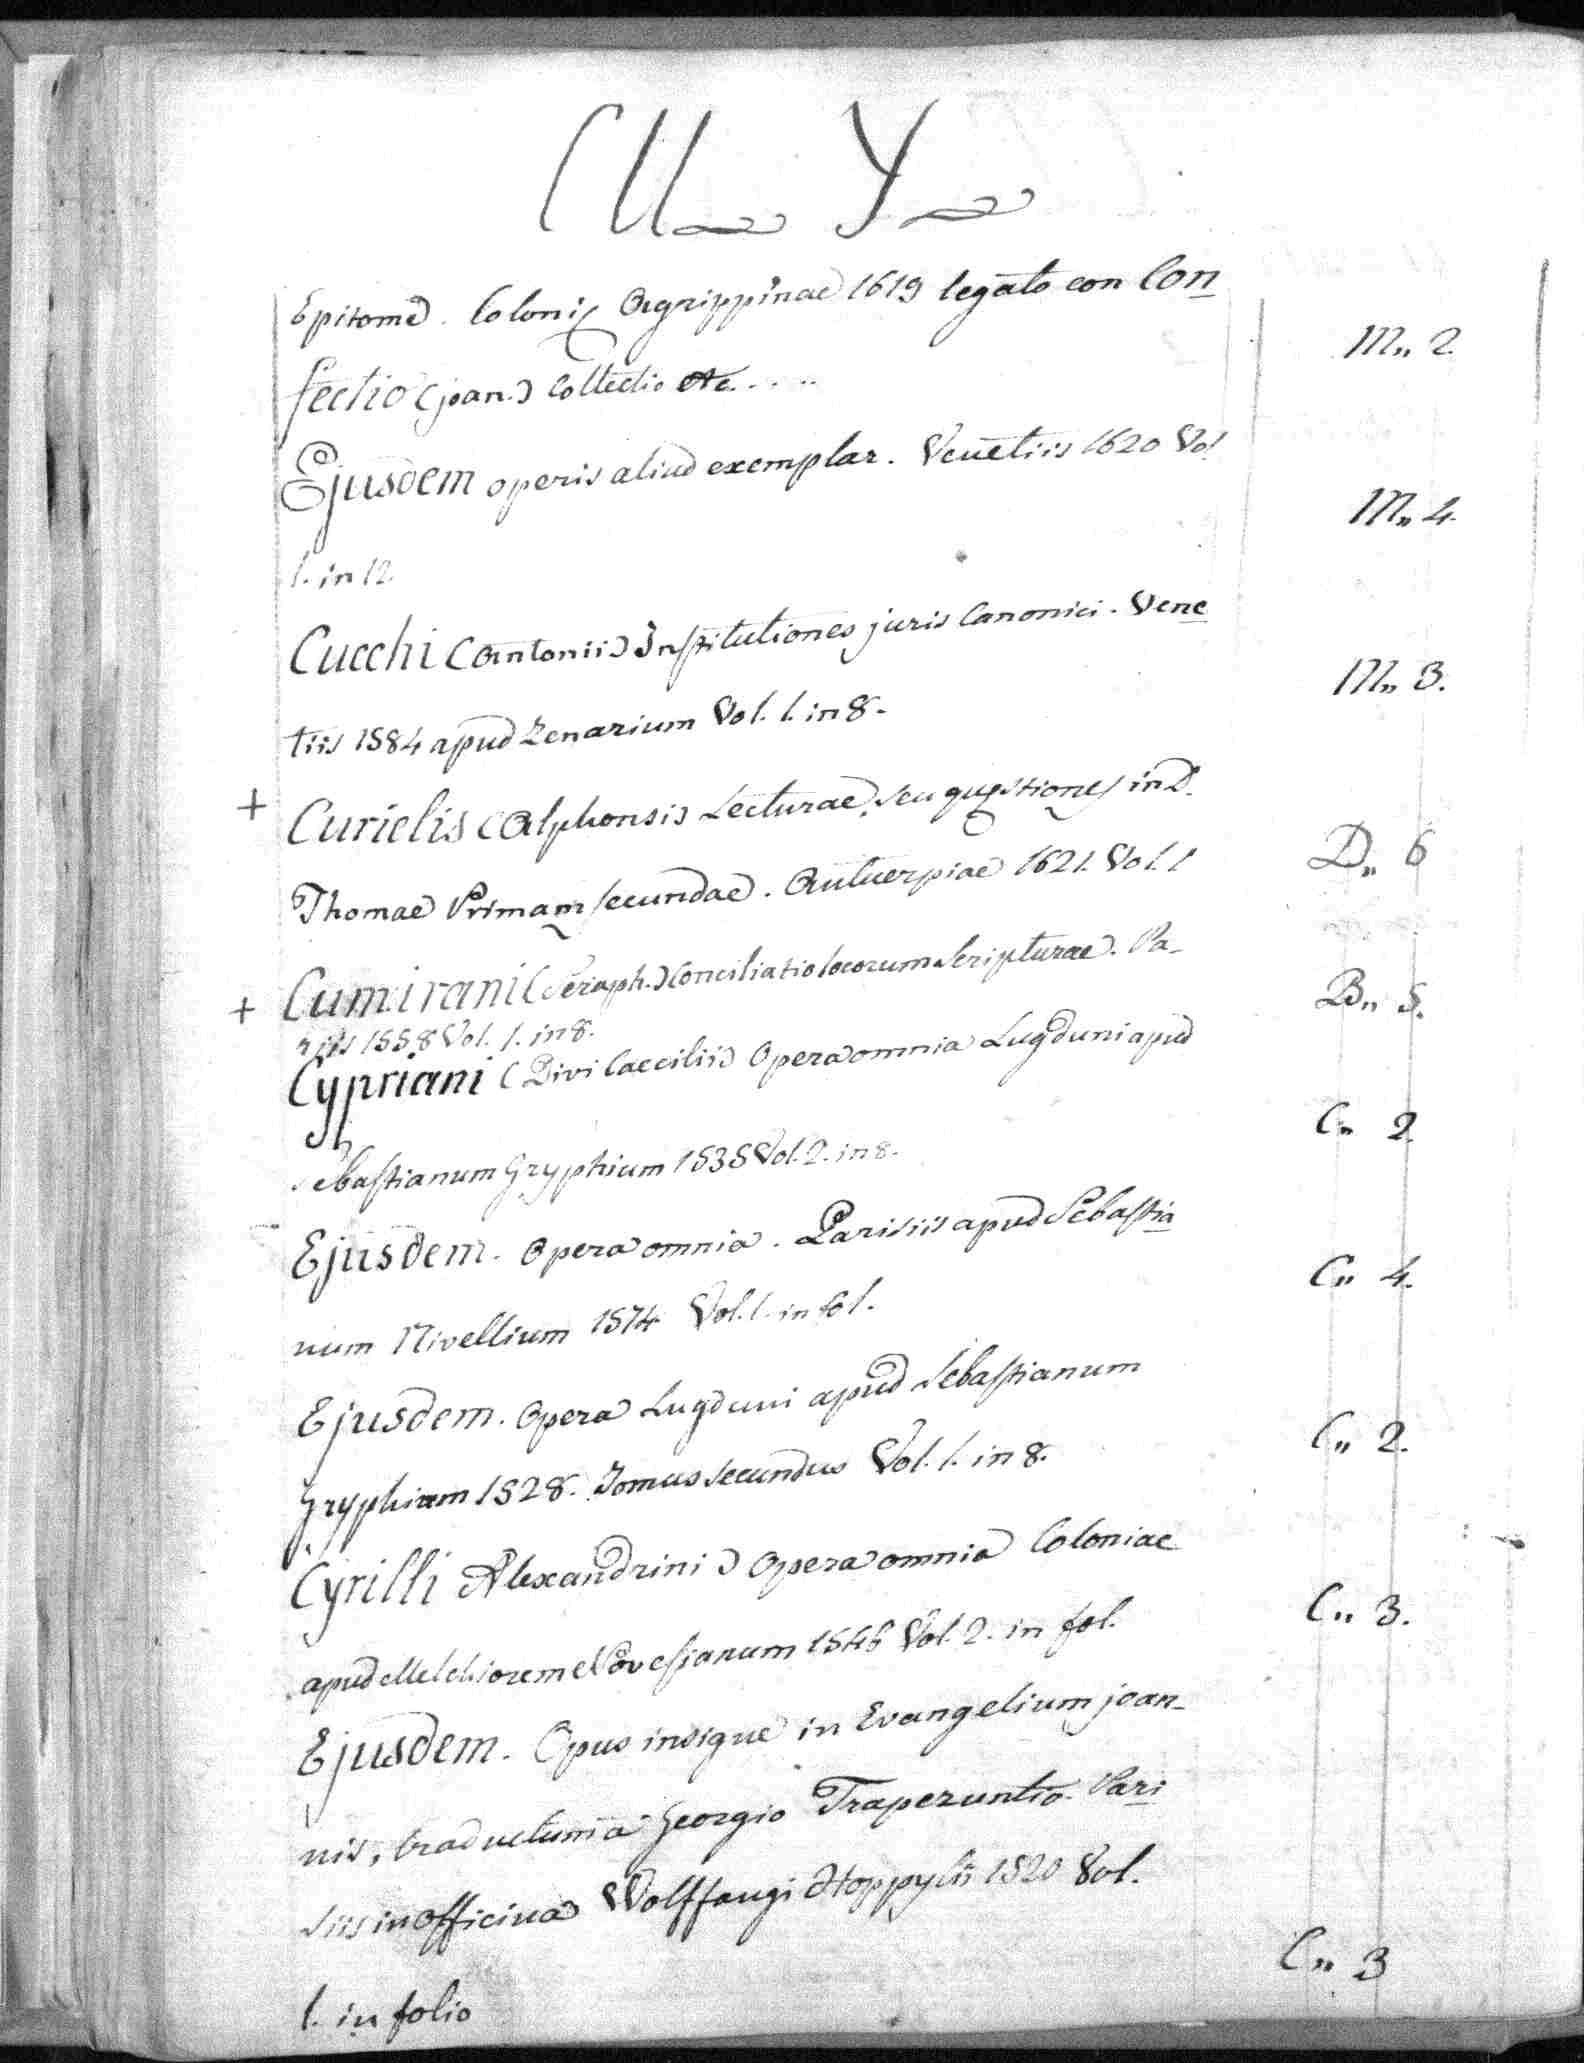 CU Y
Epitome. Colonię Agrippinae 1619 legato con Con
fectio (joan.) Collectio etc. . . . .
M„ 2.
Ejusdem operis aliud exemplar. Venetiis 1620 Vol
1. in 12.
M„ 4.
Cucchi (Antonii) Institutiones juris Canonici. Vene
tiis 1584 apud Zenarium Vol. 1. in 8.
M„ 3.
+ Curielis (Alphonsi) Lecturae, seu quęstiones in D.
Thomae Primam secundae. Antuerpiae 1621. Vol. 1
D„ 6
+ Cumirani (Seraph.) Conciliatio locorum Scripturae. Pa-
riis 1558 Vol. 1. in 8.
B„ 5.
Cypriani (Divi Caecilii) Opera omnia Lugduni apud
Sebastianum Gryphium 1535 Vol. 2. in 8.
C„ 2.
Ejusdem. Opera omnia. Parisiis apud Sebastia
num Nivellium 1574 Vol. 1. in fol.
C„ 4.
Ejusdem. Opera Lugduni apud Sebastianum
Gryphium 1528. Tomus secundus Vol. 1. in 8.
C„ 2.
Cyrilli Alexandrini) Opera omnia Coloniae
apud Melchiorem Novesianum 1546 Vol. 2. in fol.
C„ 3.
Ejusdem. Opus insigne in Evangelium joan-
nis, traductum a Georgio Traperuntio. Pari
siis in officina Wolffangi Hoppylii 1520 Vol.
1. in folio
C„ 3